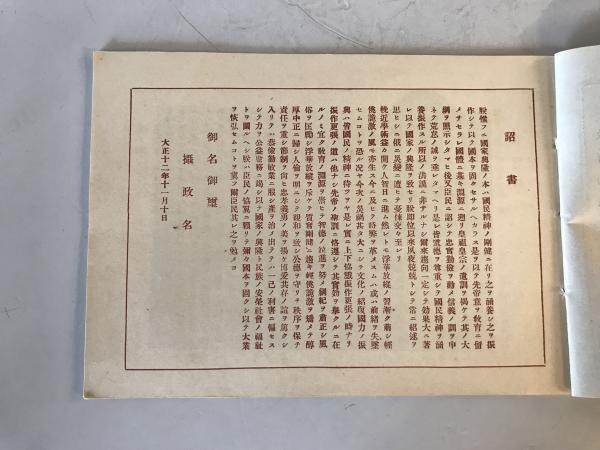 詔書
朕惟フニ國家興隆ノ本ハ國民精神ノ剛健ニ在リ之ヲ涵養シ之ヲ振
作シテ以テ國本ヲ固クセサルヘカラス是ヲ以テ先帝意ヲ教育ニ留
メサセラレ國體ニ基キ淵源ニ遡リ皇祖皇宗ノ遺訓ヲ掲ケテ其ノ大
綱ヲ昭示シタマヒ後又臣民ニ詔シテ忠實勤儉ヲ勸メ信義ノ訓ヲ申
ネテ荒怠ノ誡ヲ垂レタマヘリ是レ皆道德ヲ尊重シテ國民精神ヲ涵
養振作スル所以ノ洪謨ニ非サルナシ爾來趨向一定シテ效果大ニ著
レ以テ國家ノ興隆ヲ致セリ朕即位以來夙夜兢兢トシテ常ニ紹述ヲ
思ヒシニ俄ニ災變ニ遭ヒテ憂悚交々至レリ
輓近學術益々開ケ人智日ニ進ム然レトモ浮華放縱ノ習漸ク萠シ輕
佻詭激ノ風モ亦生ス今ニ及ヒテ時弊ヲ革メスムハ或ハ前緒ヲ失墜
セムコトヲ恐ル況ヤ今次ノ災禍甚タ大ニシテ文化ノ紹復國力ノ振
興ハ皆國民ノ精神ニ待ツヲヤ是レ實ニ上下協戮振作更張ノ時ナリ
振作更張ノ道ハ他ナシ先帝ノ聖訓ニ恪遵シテ其ノ實效ヲ擧クルニ在
ルノミ宜ク教育ノ淵源ヲ崇ヒテ智德ノ竝進ヲ努メ綱紀ヲ肅正シ風
俗ヲ匡勵シ浮華放縱ヲ斥ケテ質實剛健ニ趨キ輕佻詭激ヲ矯メテ醇
厚中正ニ歸シ人倫ヲ明ニシテ親和ヲ致シ公德ヲ守リテ秩序ヲ保チ
責任ヲ重シ節制ヲ尚ヒ忠孝義勇ノ美ヲ揚ケ博愛共存ノ誼ヲ篤クシ
入リテハ恭儉勤敏業ニ服シ產ヲ治メ出テテハ一己ノ利害ニ偏セス
シテ力ヲ公益世務ニ竭シ以テ國家ノ興隆ト民族ノ安榮社會ノ福祉
トヲ圖ルヘシ朕ハ臣民ノ協翼ニ賴リテ彌々國本ヲ固クシ以テ大業
ヲ恢弘セムコトヲ冀フ爾臣民其レ之ヲ勉メヨ
御名御璽
攝政名
大正十二年十一月十日